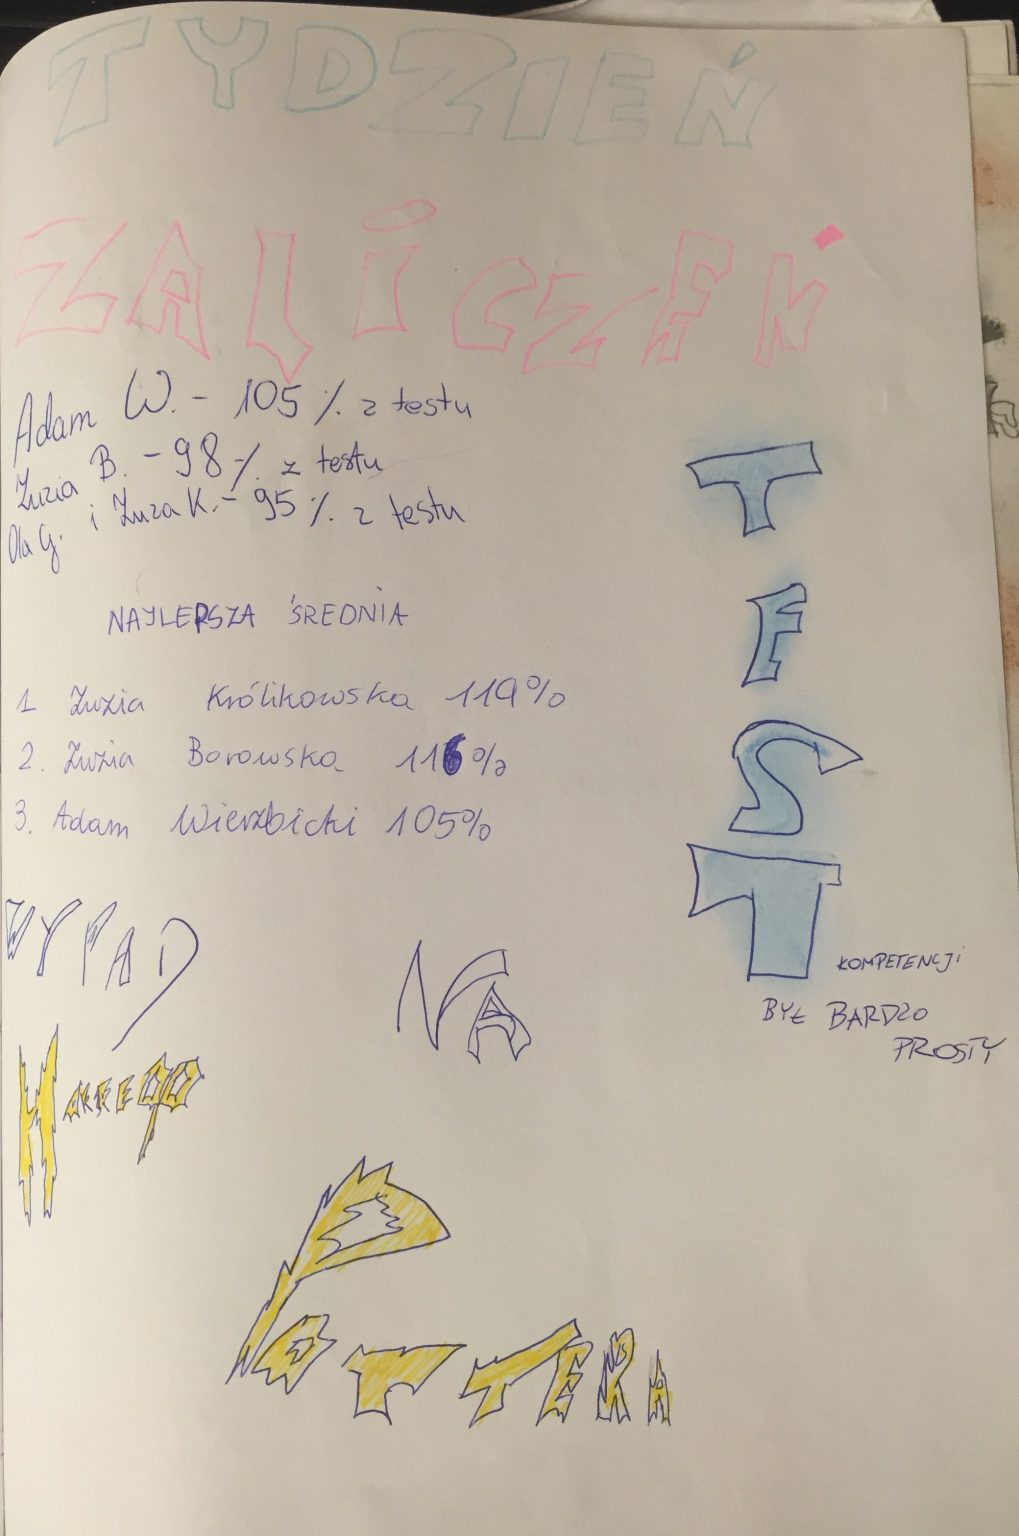 TYDZIEŃ
ZALICZEŃ
Adam W. - 105 % z testu
Zuzia B. - 98 % z testu
Ola G. i Zuza K. - 95 % z testu
NAJLEPSZA ŚREDNIA
1 Zuzia Królikowska 119%
2. Zuzia Borowska 116%
3. Adam Wierzbicki 105%
TEST
KOMPETENCJI
BYŁ BARDZO
PROSTY
WYPAD NA
HARREGO
POTTERA